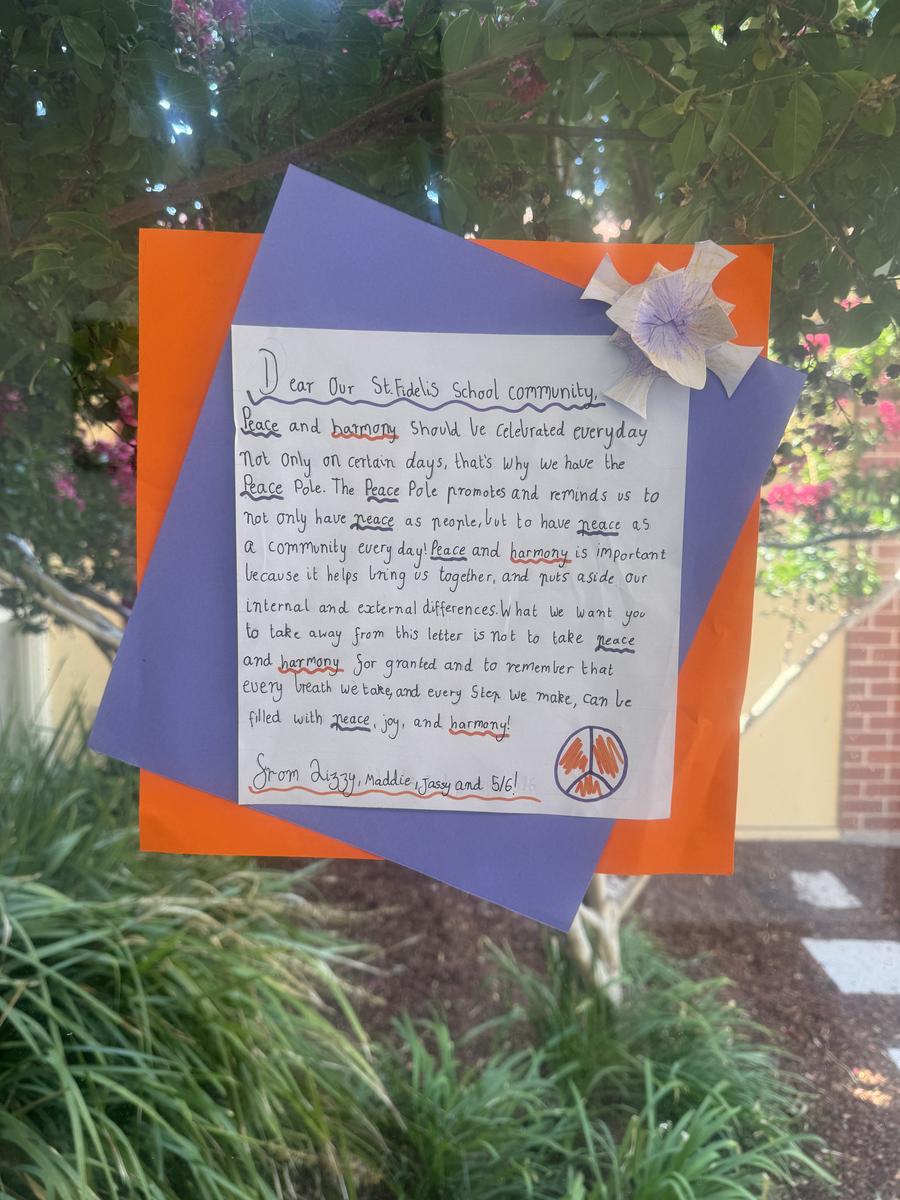 Dear Our St.Fidelis School community,
Peace and harmony should be celebrated everyday
not only on certain days, that's why we have the
Peace Pole. The Peace Pole promotes and reminds us to
not only have peace as people, but to have peace as
a community every day! Peace and harmony is important
because it helps bring us together, and puts aside our
internal and external differences. What we want you
to take away from this letter is not to take peace
and harmony for granted and to remember that
every breath we take, and every step we make, can be
filled with peace, joy, and harmony!
From Lizzy, Maddie, Jassy and 5/6!